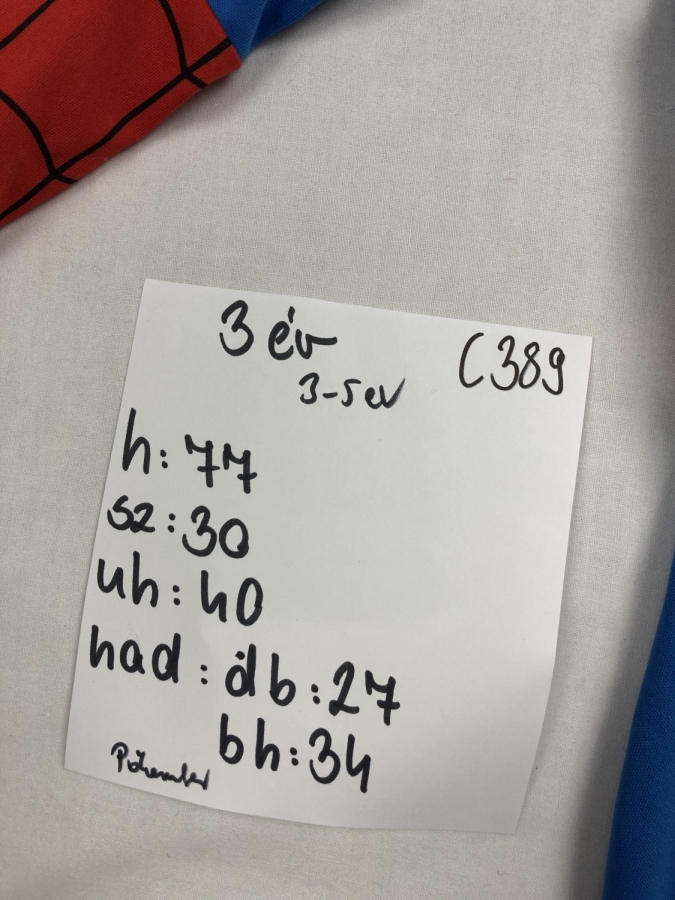 3 év C389
3-5 év
h: 77
sz: 30
uh: 40
had: db: 27
bh: 34
Pókember